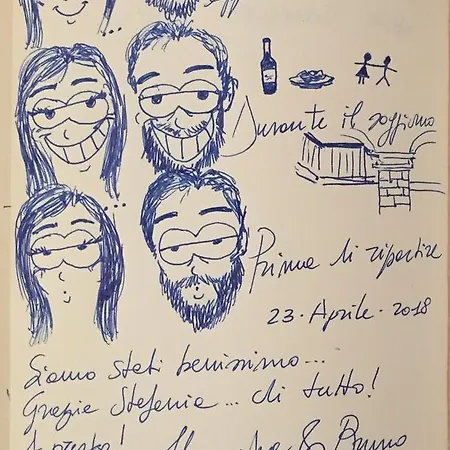 ...
Durante il soggiorno
...
Prima di ripartire
23 · Aprile · 2018
Siamo stati benissimo...
Grazie Stefania... di tutto!
A presto!
& Bruno